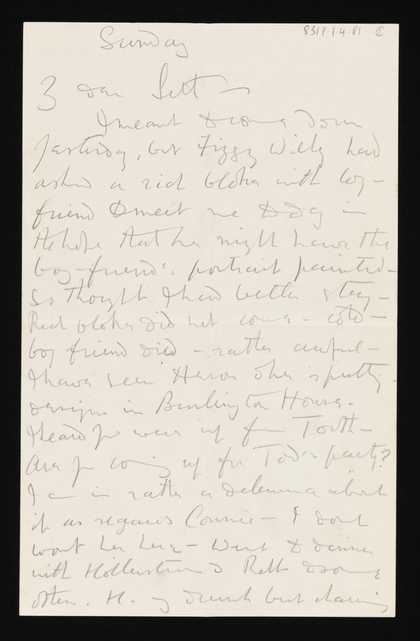 Sunday
8317.1.4.81
3 dear Sett —
I meant to come down
yesterday, but Fizzy Willy had
asked a rich bloke with boy-
friend to meet me today in
the hope that he might have the
boy-friend's portrait painted —
So thought I had better stay —
Rich bloke did not come —
boy friend did — rather awful —
I have seen Heron & her pretty
designs in Burlington House.
I heard you were up for Tooth —
Are you coming up for Tod's party?
I am in rather a dilemma about
it as regards Connie — I don't
want her here — Went to dinner
with &
often. H. drunk but charming